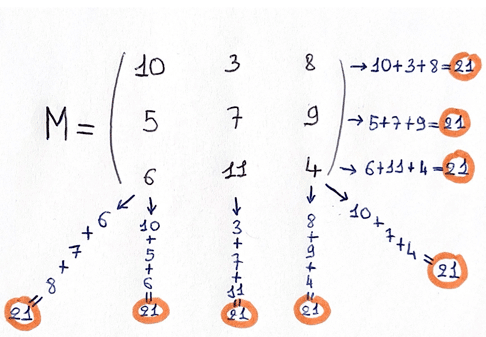 10 3 8 →10+3+8=21
M= 5 7 9 →5+7+9=21
6 11 4 →6+11+4=21
8+7+6=21
10+5+6=21
3+7+11=21
8+9+4=21
10+7+4=21